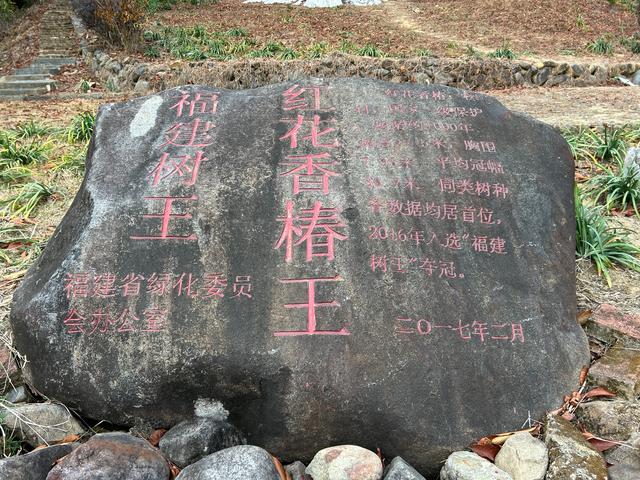 福建树王
红花香椿王
红花香椿
保护
胸围
平均冠幅
同类树种
各数据均居首位,
2016年入选"福建
树王"夺冠。
二〇一七年二月
福建省绿化委员
会办公室